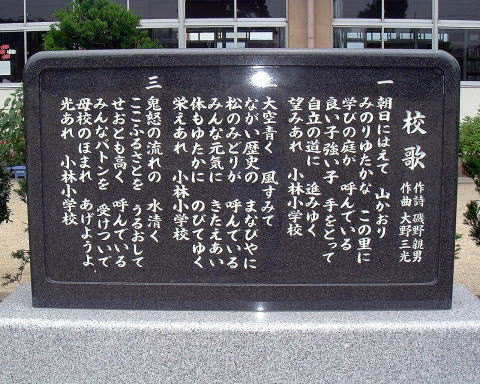 校歌
作詩 磯野親男
作曲 大野三光
一
朝日にはえて 山かおり
みのりゆたかな この里に
学びの庭が 呼んでいる
良い子強い子 手をとって
自立の道に 進みゆく
望みあれ 小林小学校
二
大空青く 風すみて
ながい歴史の まなびやに
松のみどりが 呼んでいる
みんな元気に きたえあい
体もゆたかに のびてゆく
栄えあれ 小林小学校
三
鬼怒の流れの 水清く
ここふるさとを うるおして
せおとも高く 呼んでいる
みんなバトンを 受けついで
母校のほまれ あげようよ
光あれ 小林小学校